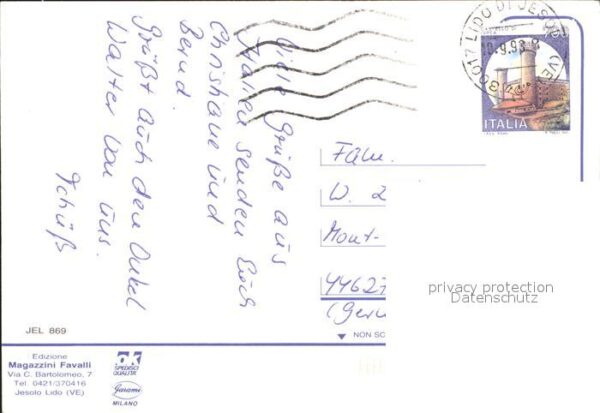 Viele Grüße aus
Italien senden Euch
Christiane und
Bernd.
Grüßt auch den Onkel
Walter von uns.
Tschüß
30017 LIDO DI JESOLO
(VE)
ITALIA
Fam.
W. 2
Mont-
44627
(Germ
NON SC
privacy protection
Datenschutz
JEL 869
Edizione
Magazzini Favalli
Via C. Bartolomeo, 7
Tel. 0421/370416
Jesolo Lido (VE)
OK
SPEDISCI
QUALITA'
Garami
MILANO